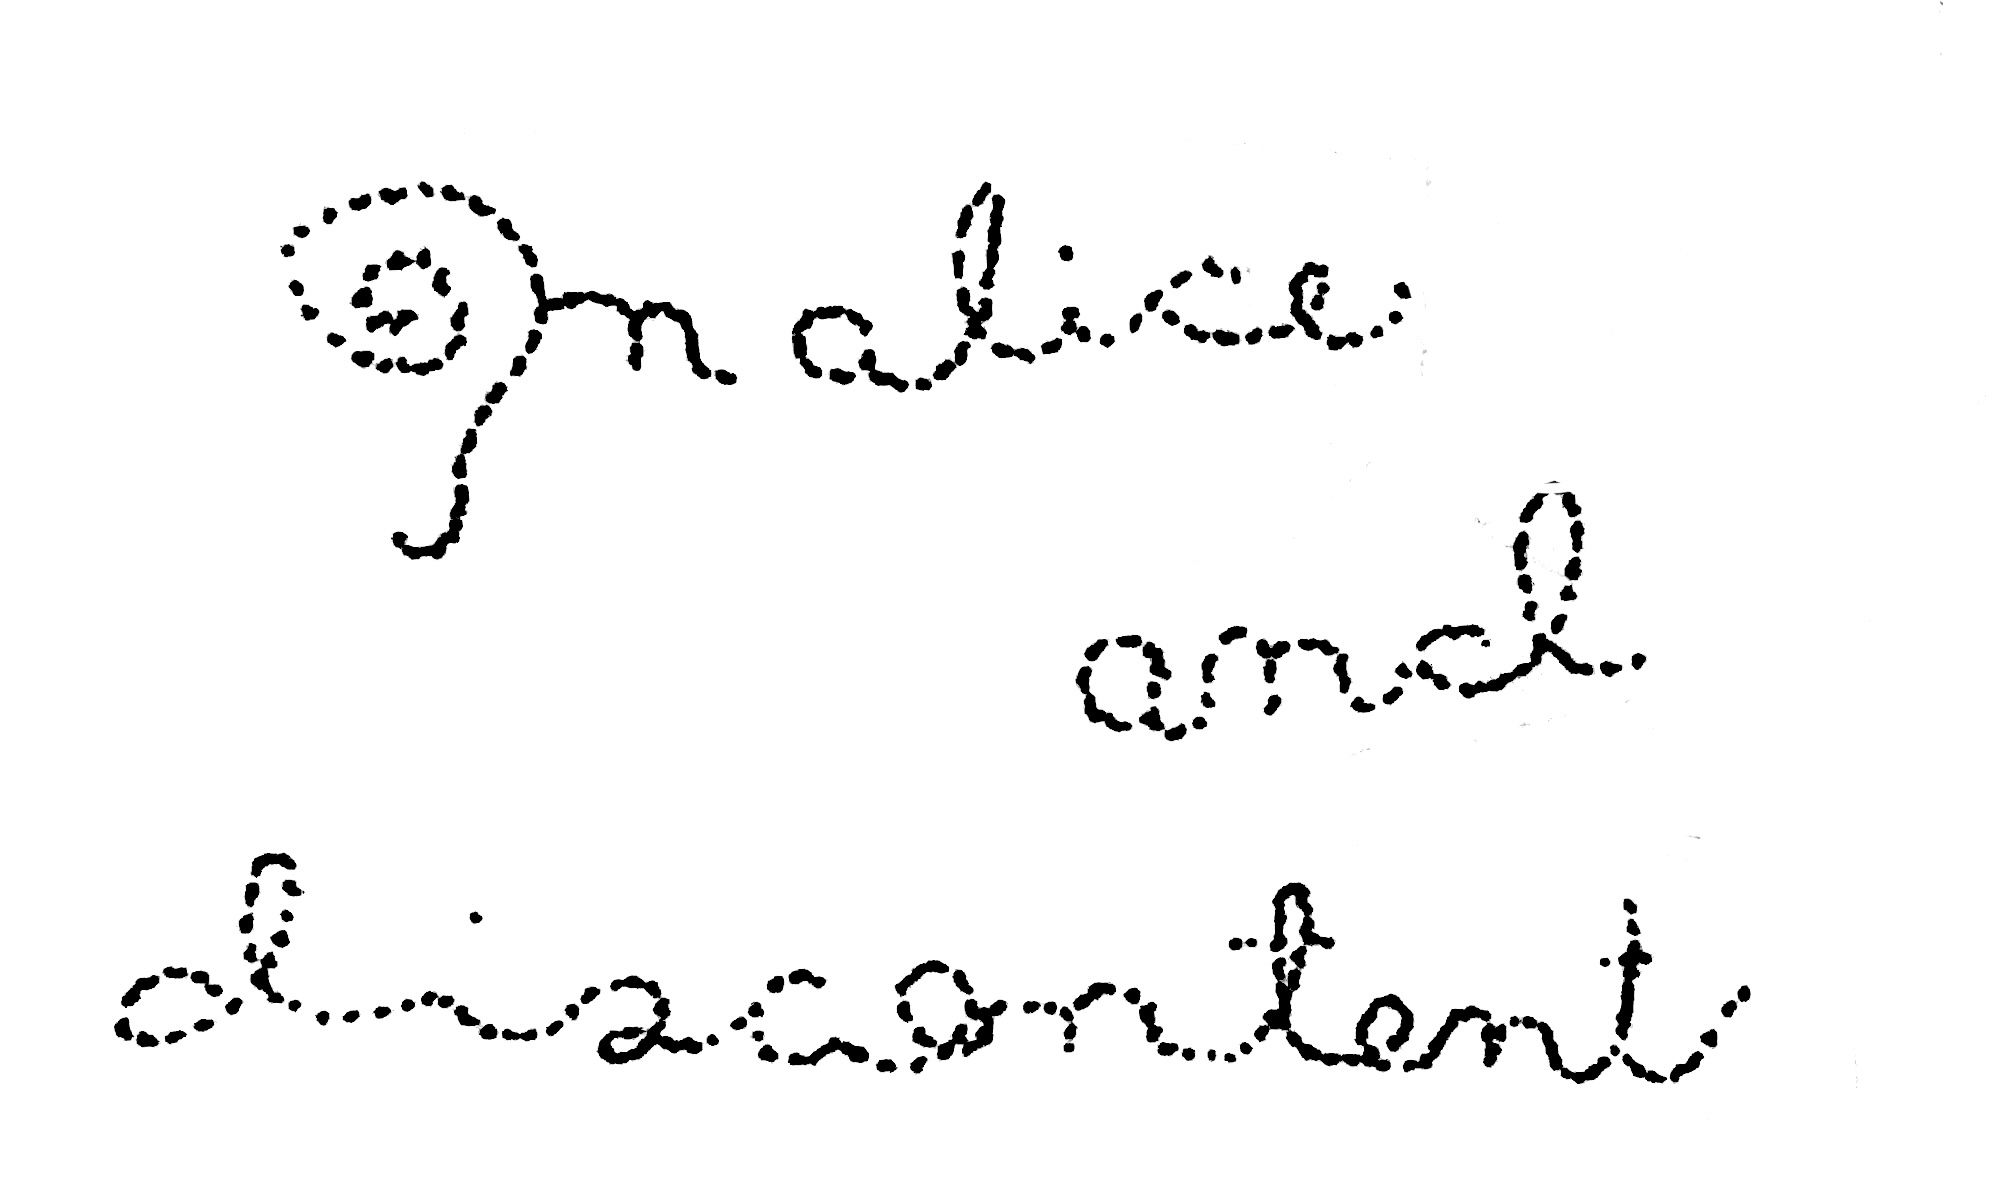 Malice
and
discontent